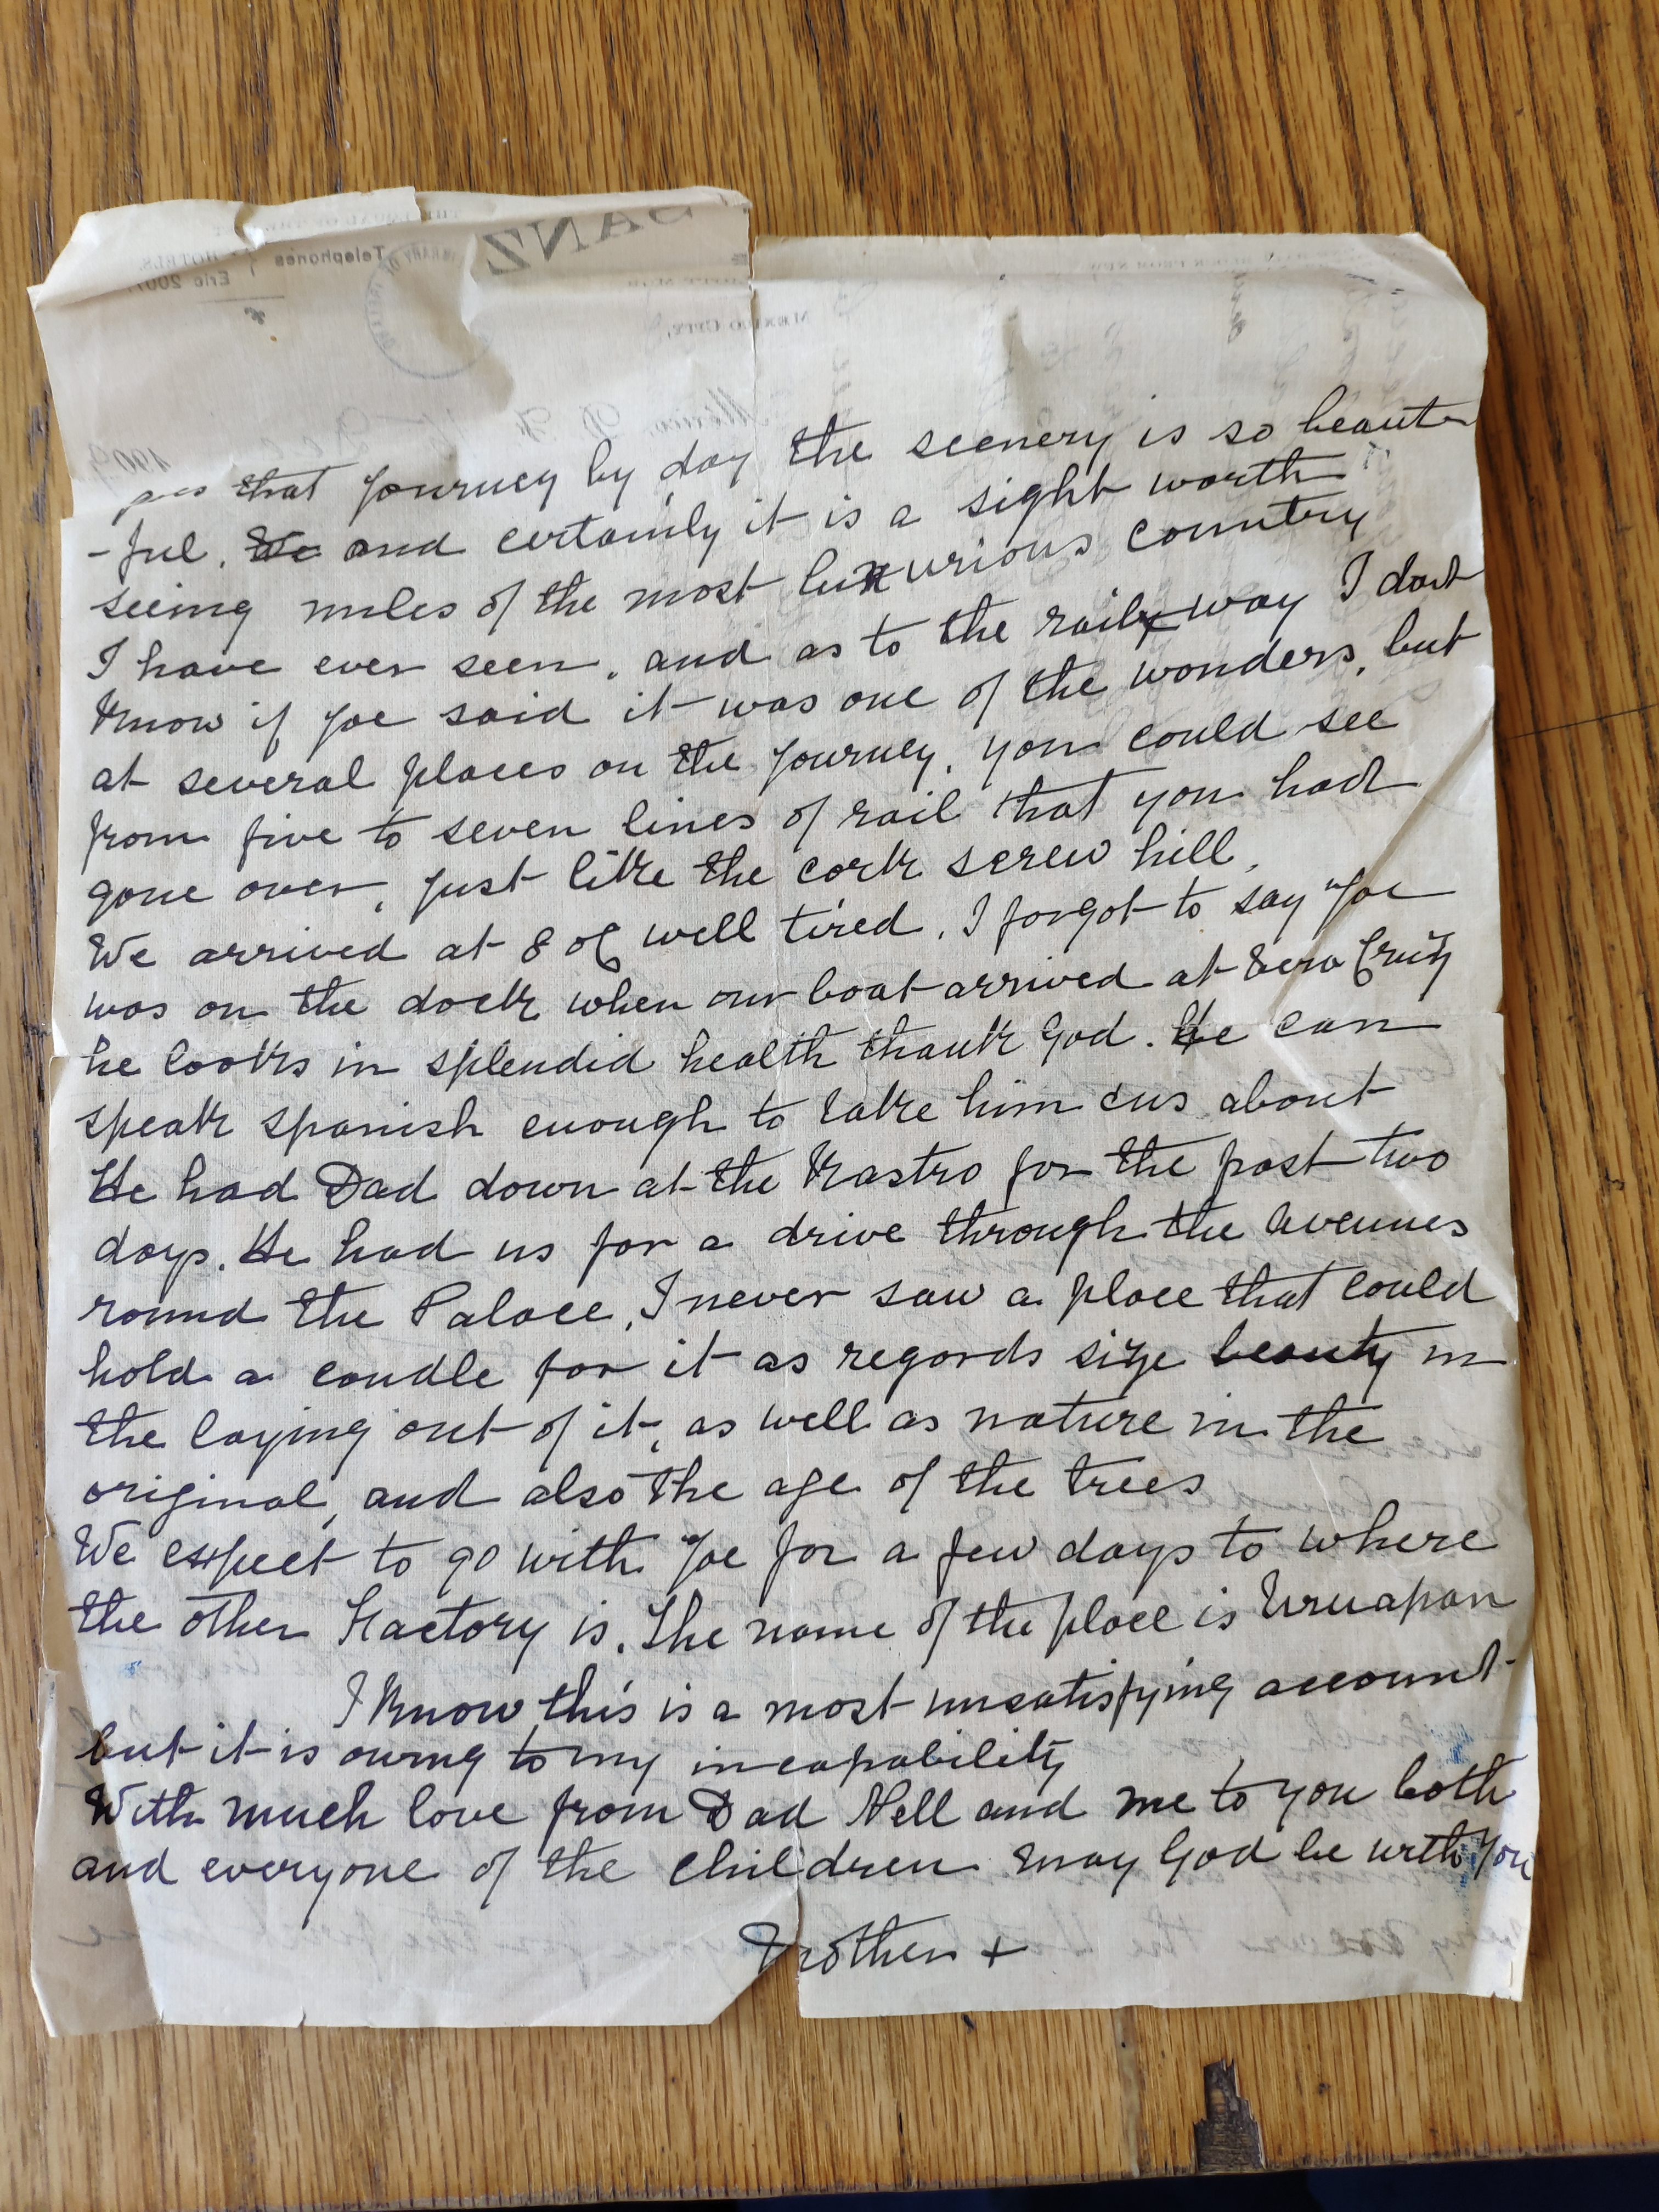 SANZ
HOTELS.
Telephones
Eric 200
LIBRARY OF
MEXICO CITY,
Mexico, D. F.
190
that journey by day the scenery is so beauti
-ful. We and certainly it is a sight worth
seeing miles of the most luxurious country
I have ever seen, and as to the railway I dont
know if Joe said it was one of the wonders, but
at several places on the journey, you could see
from five to seven lines of rail that you had
gone over, just like the cork screw hill,
We arrived at 8 oC well tired. I forgot to say Joe
was on the dock when our boat arrived at Vera Cruz
he looks in splendid health thank God. He can
speak spanish enough to take him & us about
He had Dad down at the Rastro for the past two
days. He had us for a drive through the Avenues
round the Palace, I never saw a place that could
hold a candle for it as regards size beauty in
the laying out of it, as well as nature in the
original, and also the age of the trees
We expect to go with Joe for a few days to where
the other Factory is. The name of the place is Uruapan
I know this is a most unsatisfying account
but it is owing to my incapability
With much love from Dad Nell and me to you both
and everyone of the children may God be with you
Mother +